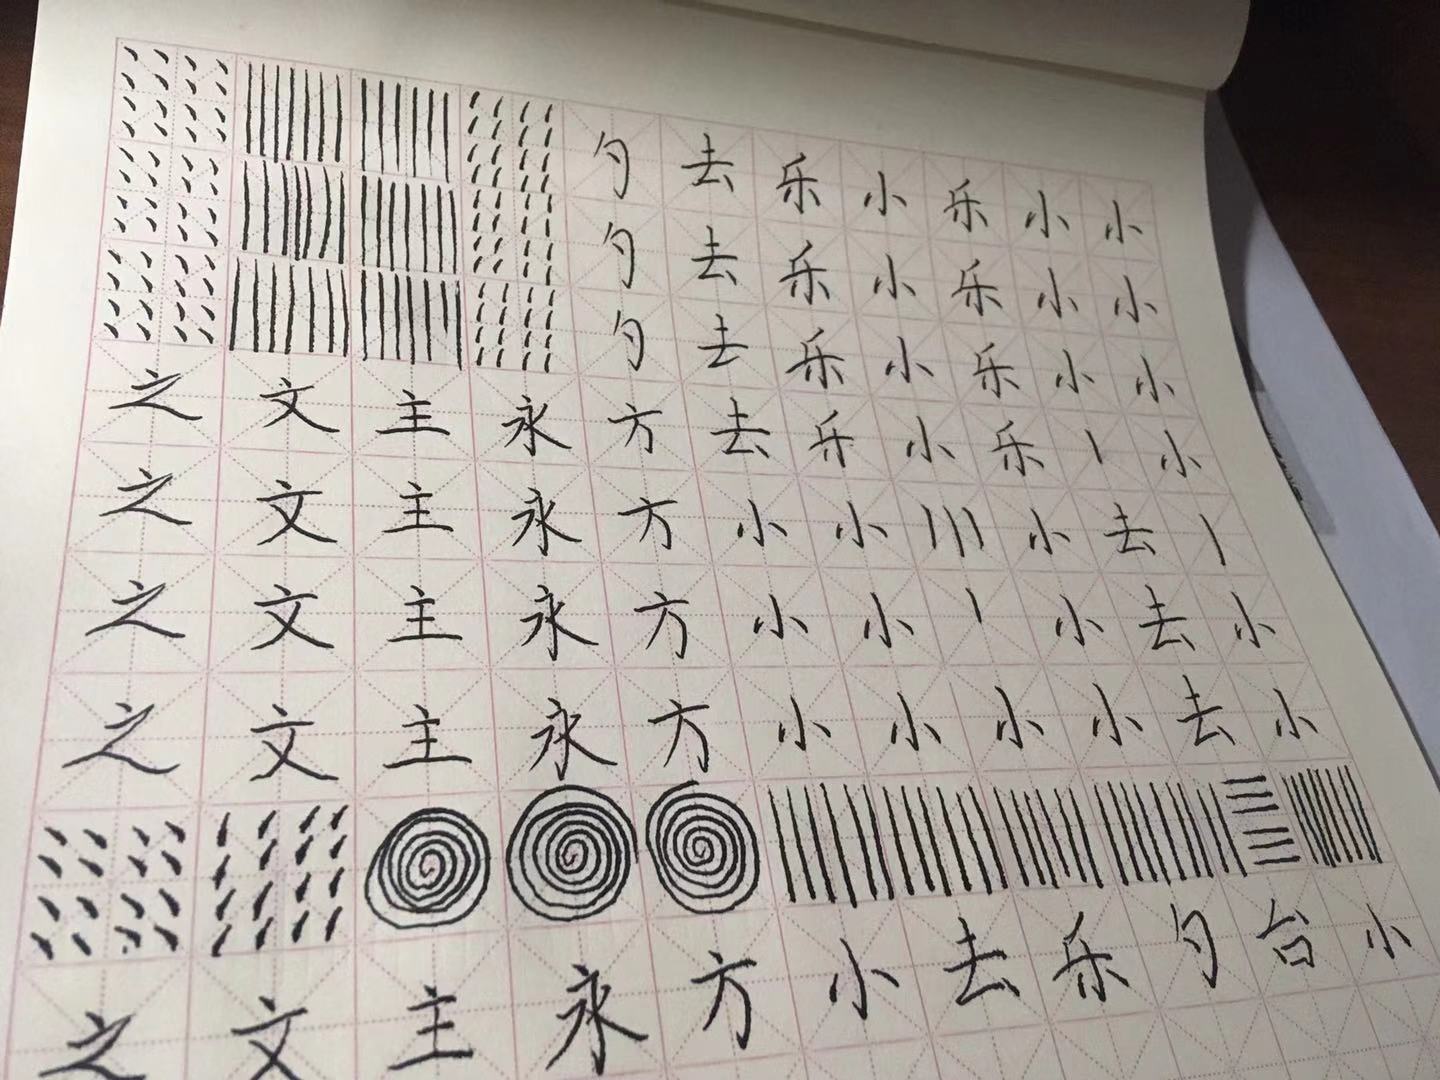 勺 去 乐 小 乐 小 小
勺 去 乐 小 乐 小 小
勺 去 乐 小 乐 小 小
之 文 主 永 方 去 乐 小 乐 小
之 文 主 永 方 小 小 小 去
之 文 主 永 方 小 小 小 去 小
之 文 主 永 方 小 小 小 小 去 小
之 文 主 永 方 小 去 乐 勺 台 小